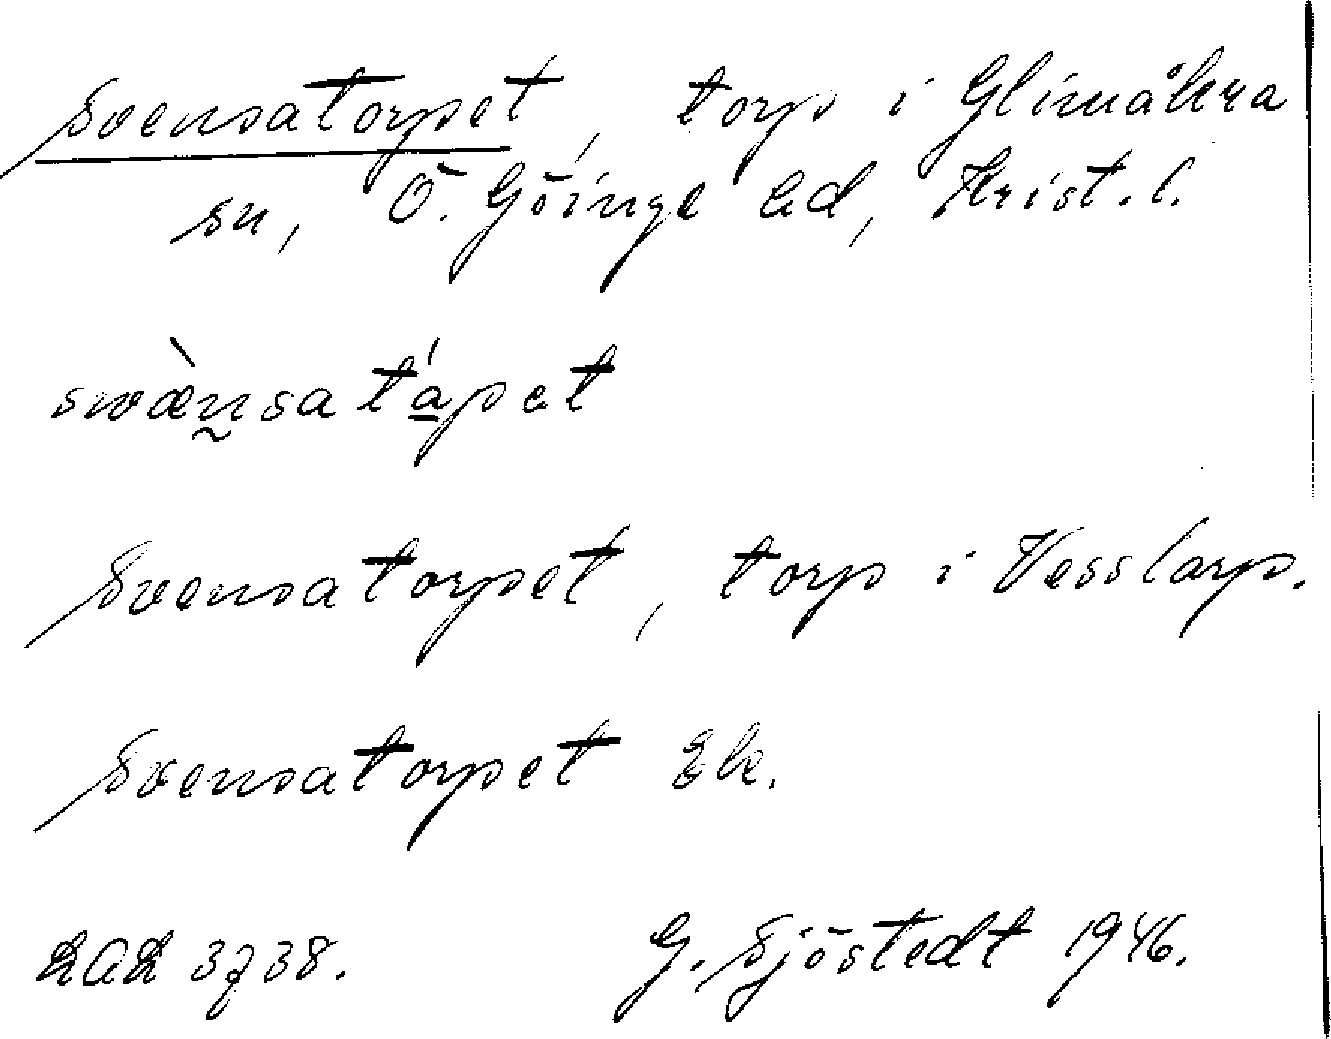 Svensatorpet, torp i Glimåkra
sn, Ö. Göinge hd, Krist. l.
swæ̀n̰sat á̱pet
Svensatorpet, torp i Vesslarp.
Svensatorpet Ek.
LAL 3738. G. Sjöstedt 1946.